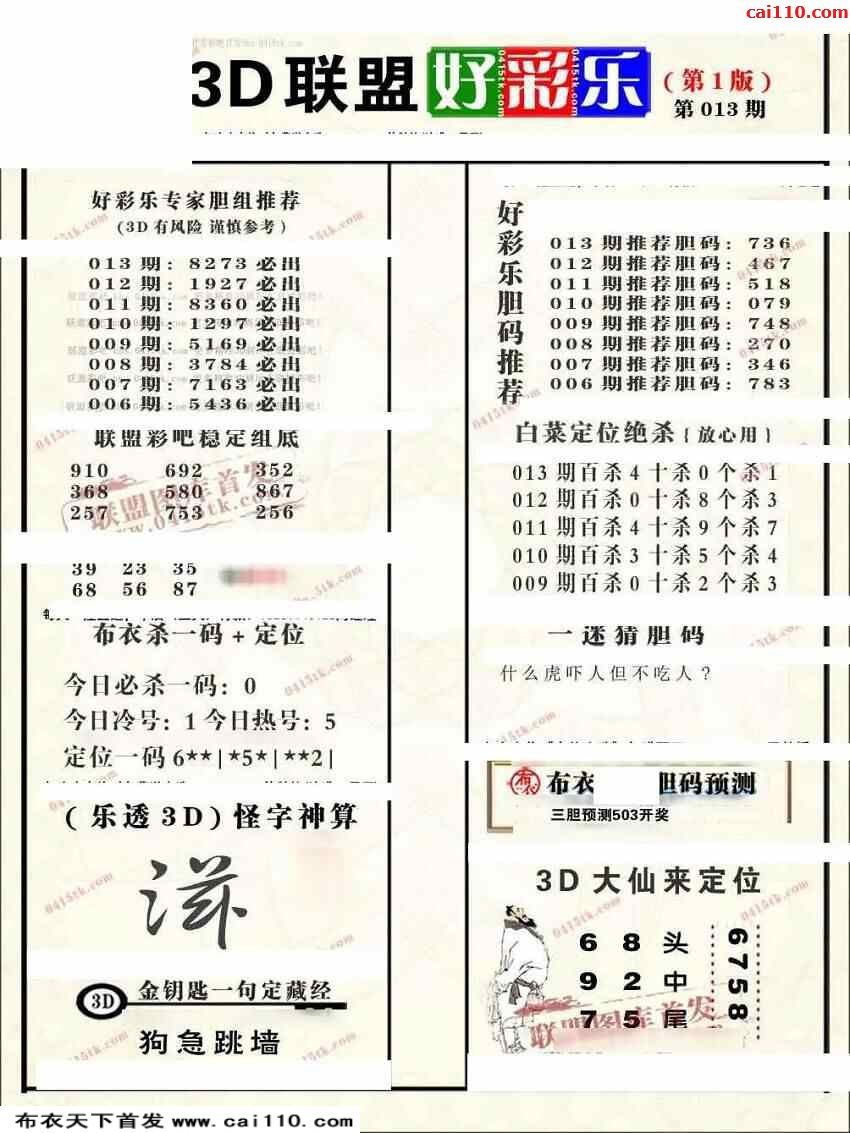 cai110.com
3D联盟好彩乐(第1版)
第013期
好彩乐专家胆组推荐
(3D有风险 谨慎参考)
013期: 8273必出
012期: 1927必出
011期: 8360必出
010期: 1297必出
009期: 5169必出
008期: 3784必出
007期: 7163必出
006期: 5436必出
联盟彩吧稳定组底
910 692 352
368 580 867
257 753 256
联盟图库首发
www.0415tk.com
39 23 35
68 56 87
布衣杀一码+定位
今日必杀一码: 0
今日冷号: 1 今日热号: 5
定位一码6**|*5*|**2|
(乐透3D)怪字神算
3D 金钥匙一句定藏经
狗急跳墙
好彩乐胆码推荐
013期推荐胆码: 736
012期推荐胆码: 467
011期推荐胆码: 518
010期推荐胆码: 079
009期推荐胆码: 748
008期推荐胆码: 270
007期推荐胆码: 346
006期推荐胆码: 783
白菜定位绝杀{放心用}
013期百杀4十杀0个杀1
012期百杀0十杀8个杀3
011期百杀4十杀9个杀7
010期百杀3十杀5个杀4
009期百杀0十杀2个杀3
一迷猜胆码
什么虎吓人但不吃人?
布衣 胆码预测
三胆预测503开奖
3D大仙来定位
6 8 头
9 2 中
7 5 尾
6758
联盟图库首发
布衣天下首发 www.cai110.com